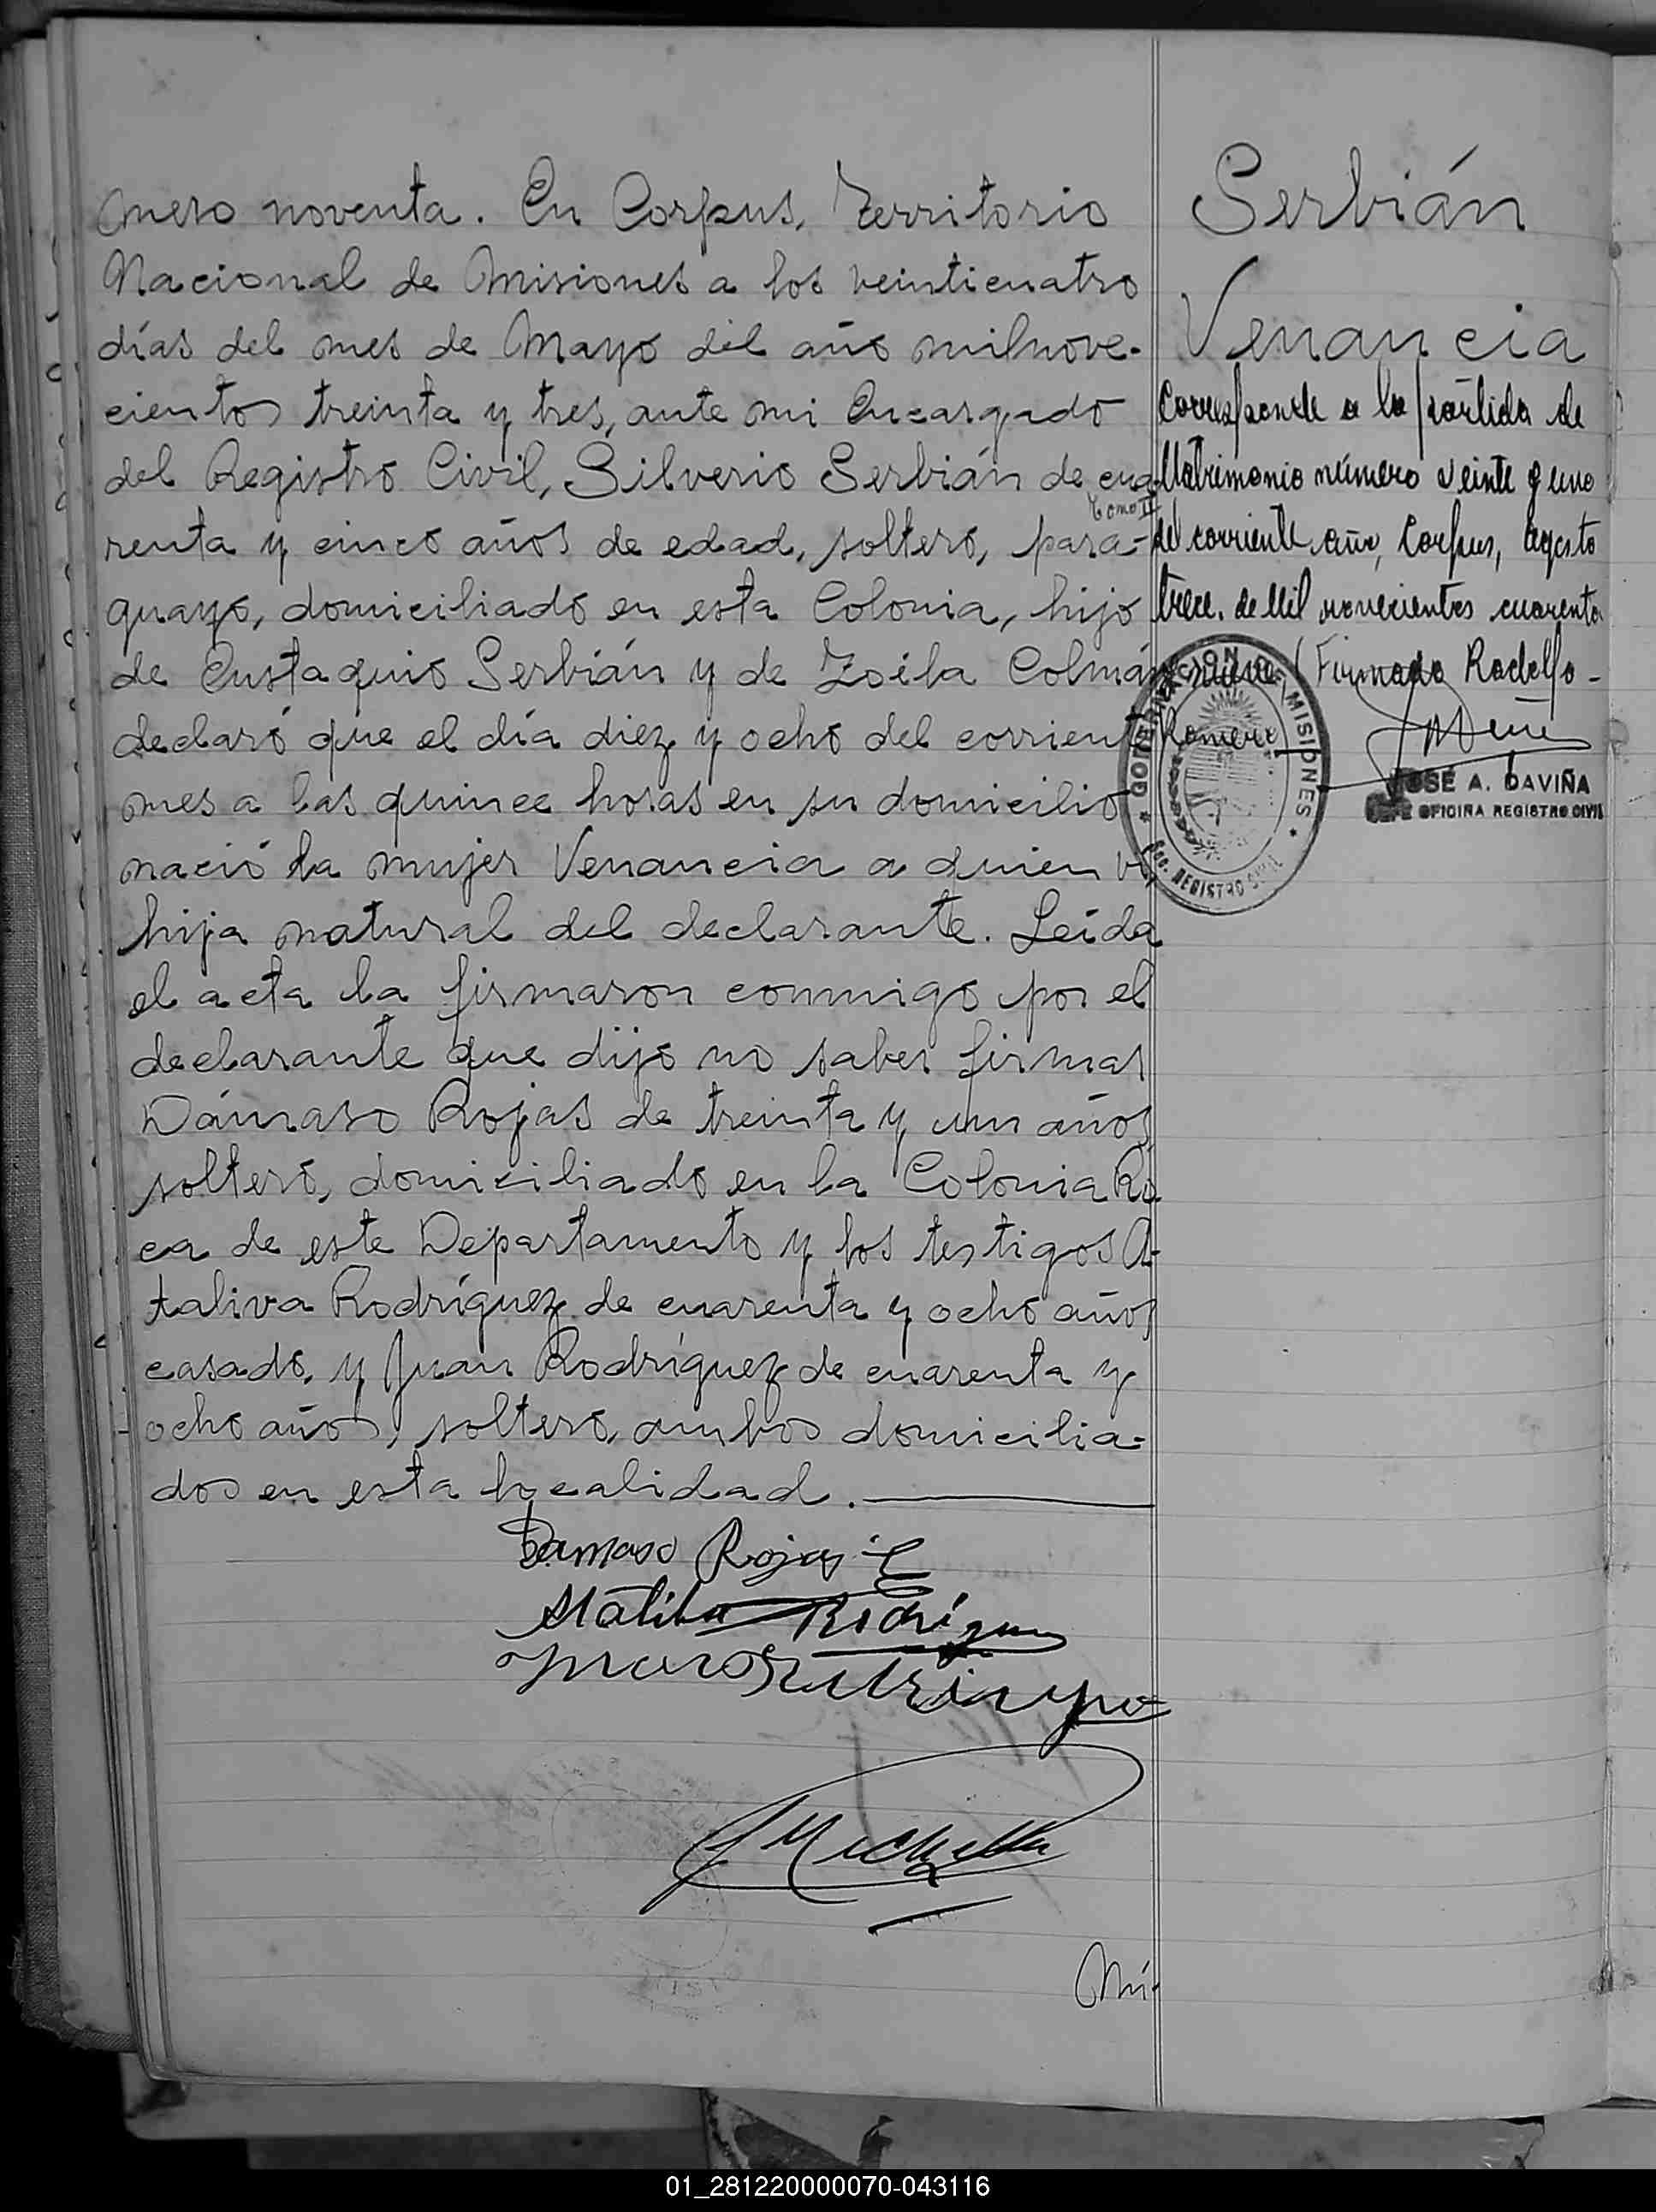 mero noventa. En Corpus, Territorio
Nacional de Misiones a los veinticuatro
días del mes de Mayo del año milnove-
cientos treinta y tres, ante mi Encargado
del Registro Civil, Silverio Serbián de cua-
renta y cinco años de edad, soltero, para-
guayo, domiciliado en esta Colonia, hijo
de Eustaquio Serbián y de Zoila Colmán
declaró que el día diez y ocho del corriente
mes a las quince horas en su domicilio
nació la mujer Venancia a quien vi,
hija natural del declarante. Leida
el acta la firmaron conmigo por el
declarante que dijo no saber firmar
Dámaso Rojas de treinta y un años
soltero, domiciliado en la Colonia Ro-
ca de este Departamento y los testigos A-
taliva Rodríguez de cuarenta y ocho años
casado, y Juan Rodríguez de cuarenta y
ocho años, soltero, ambos domicilia-
dos en esta localidad.
Damaso Rojas
Ataliva Rodríguez
Mú-
Serbián
Venancia
Corresponde a la partida de
Matrimonio número veinte y uno
Tomo II
del corriente año, Corpus, Agosto
trece. de Mil novecientos cuarenta
y nueve (Firmado Rodolfo -
Romero
GOBERNACION DE MISIONES
REGISTRO CIVIL
JOSÉ A. DAVIÑA
JEFE OFICINA REGISTRO CIVIL
01_281220000070-043116